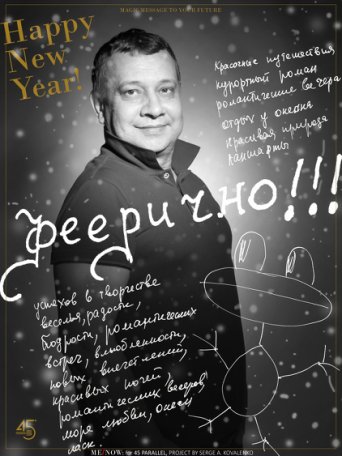 MAGIC MESSAGE TO YOUR FUTURE
Happy
New
Year!
Красочные путешествия
курортный роман
романтические вечера
отдых у океана
красивая природа
концерты
феерично!!!
успехов в творчестве
веселья, радости,
бодрости, романтических
встреч, влюбленности,
новых впечатлений,
красивых ночей,
романтических вечеров
море любви, океан
ласк
45
ME/NOW: for 45 PARALLEL, PROJECT BY SERGE A. KOVALENKO